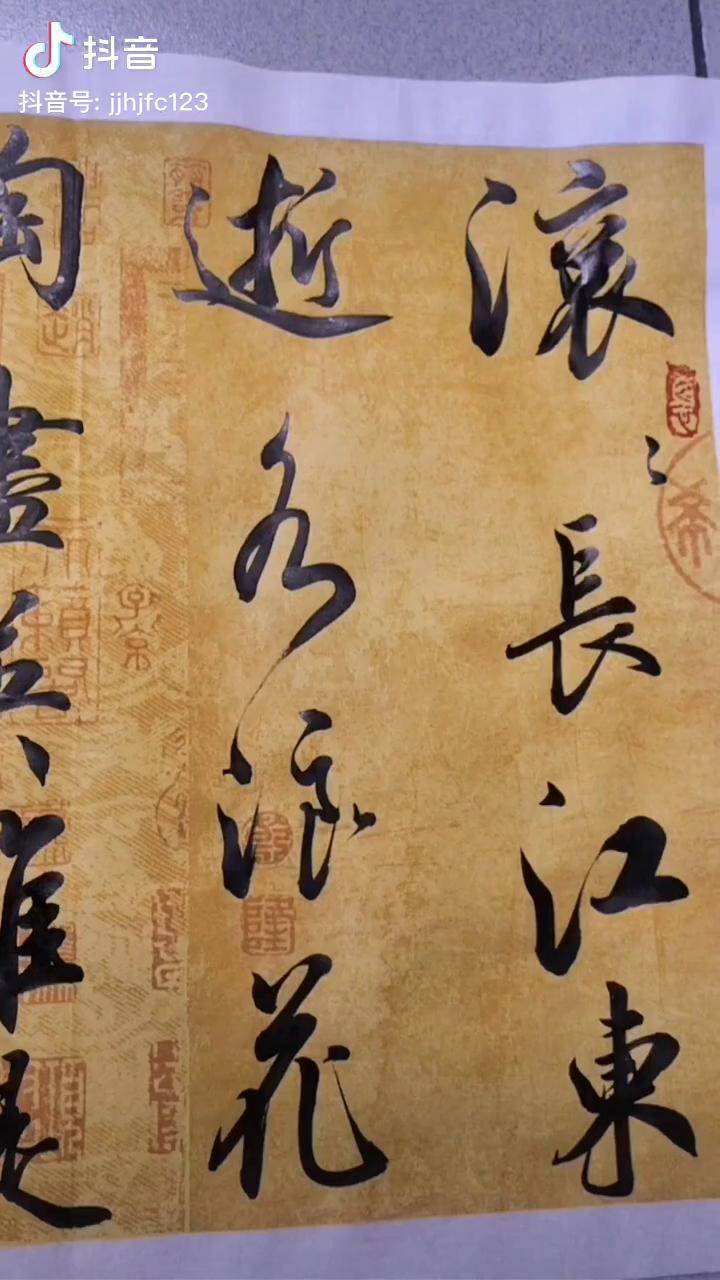 抖音
抖音号: jjhjfc123
滚〻長江東
逝水浪花
淘盡英雄是
子京